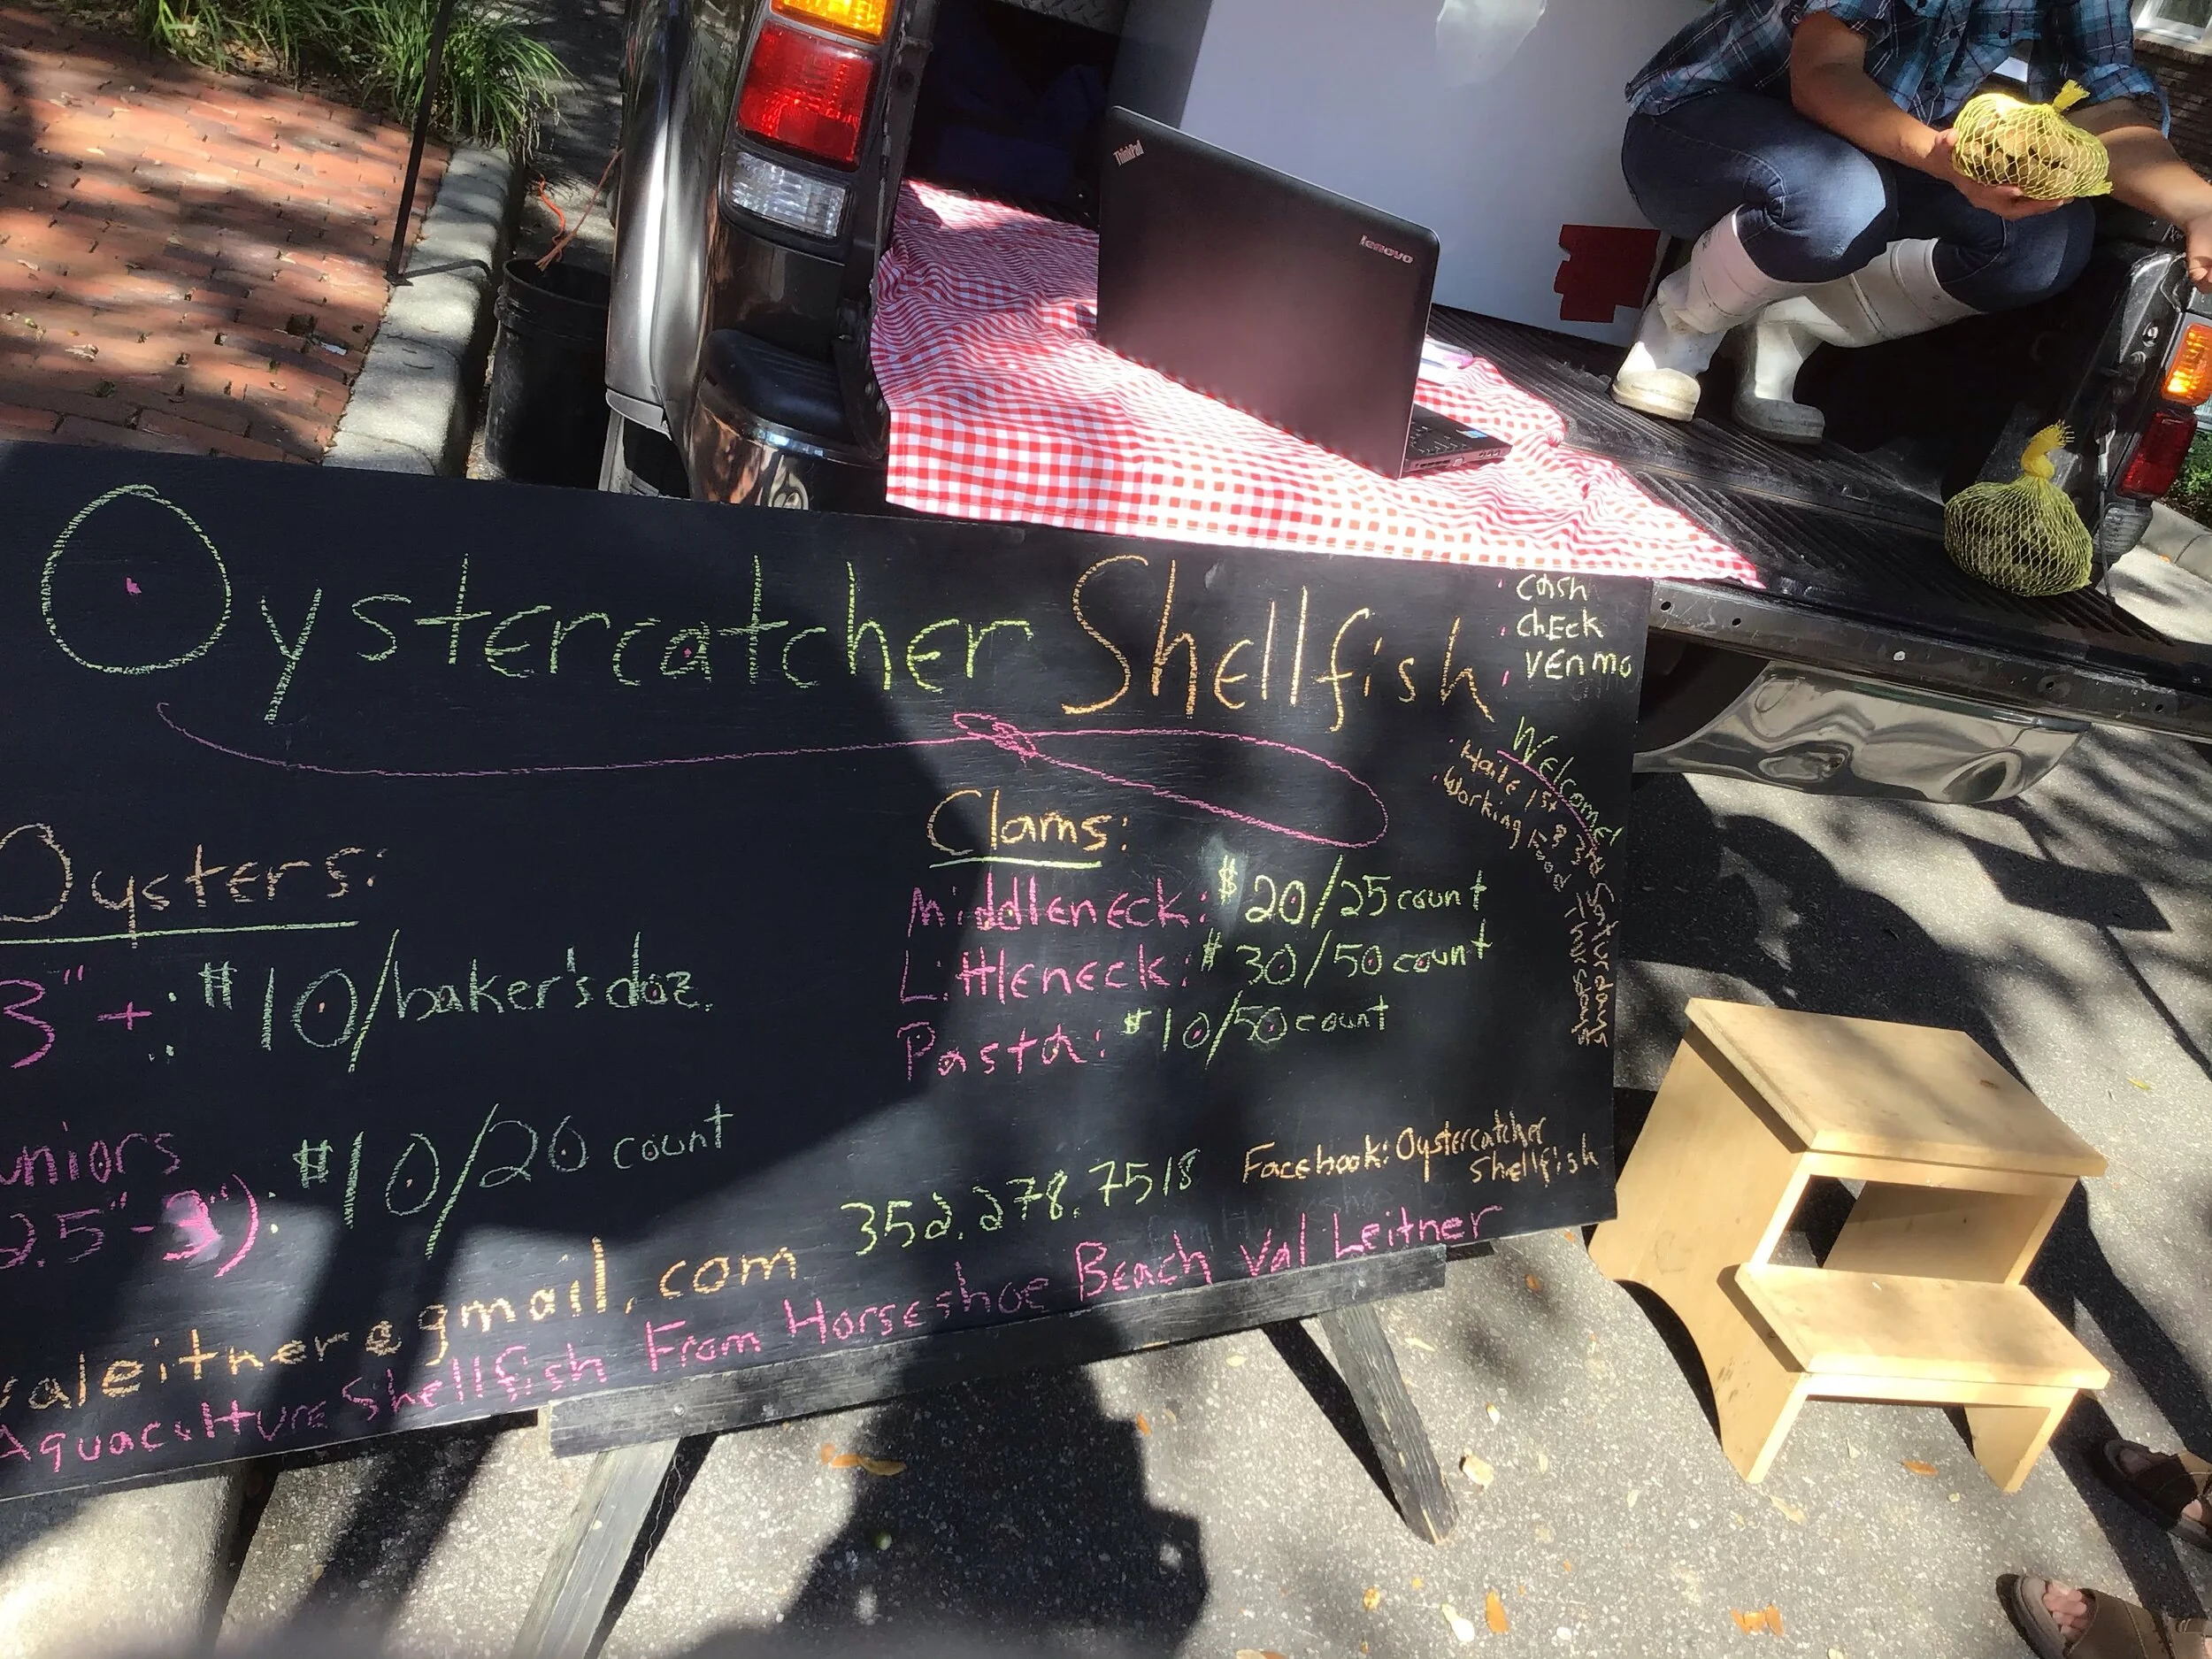 ThinkPad
lenovo
Oystercatcher Shellfish
cash
chEck
vEnmo
Welcome!
Haile 1st & 3rd Saturdays
Working Food Thursdays
Oysters:
3"+: $10/baker's doz.
uniors
2.5"-3"): $10/20 count
Clams:
Middleneck: $20/25 count
Littleneck: $30/50 count
Pasta: $10/50 count
352.278.7518
Facebook: Oystercatcher
Shellfish
valeitner@gmail.com
Aquaculture Shellfish From Horseshoe Beach Val Leitner